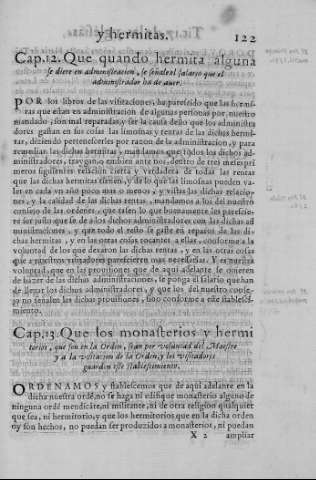 y hermitas. 122
Cap. 12. Que quando hermita alguna
se diere en administracion, se señale el salario que el
administrador ha de auer.
POR los libros de las visitaciones, ha parescido que las hermi-
tas que estan en administracion de algunas personas por nuestro
mandado, son mal reparadas, y ser la causa desto que los administra
dores gastan en sus cosas las limosnas y rentas de las dichas hermi-
tas, diziendo pertenecerles por razon de la administracion, y para
remediar las dichas hermitas, mandamos que todos los dichos ad-
ministradores, traygan o embien ante nos, dentro de tres meses pri
meros siguientes relacion cierta y verdadera de todas las rentas
que las dichas hermitas tienen, y de lo que las limosnas pueden va-
ler en cada vn año poco mas o menos, y vistas las dichas relacio-
nes, y la calidad de las dichas rentas, mandamos a los del nuestro
consejo de las ordenes, que tassen lo que buenamente les parescie-
re ser justo que se de a los dichos administradores con las dichas ad
ministraciones, y que todo el resto se gaste en reparos de las di-
chas hermitas, y en las otras cosas tocantes a ellas, conforme a la
voluntad de los que dexaron las dichas rentas, y en las otras cosas
que a nuestros visitadores parescieren mas necessarias. Y es nuestra
voluntad, que en las prouisiones que de aqui adelante se ouieren
de hazer de las dichas administraciones, se ponga el salario que han
de lleuar los dichos administradores, y que los del nuestro conse-
jo no señalen las dichas prouisiones, sino conforme a este establesci-
miento.
Cap. 13. Que los monasterios y hermi
torios, que son en la Orden, sean por voluntad del Maestre
y a la visitacion de la Orden, y los visitadores
guarden este establescimiento.
ORDENAMOS y establescemos que de aqui adelante en la
dicha nuestra ordē, no se haga ni edifique monasterio alguno de
ninguna ordē mendicāte, ni militante, ni de otra religion qualquier
que sea, ni hermitorio, y que los hermitorios que en la dicha orden
oy son hechos, no puedan ser produzidos a monasterios, ni puedan
X 2 ampliar